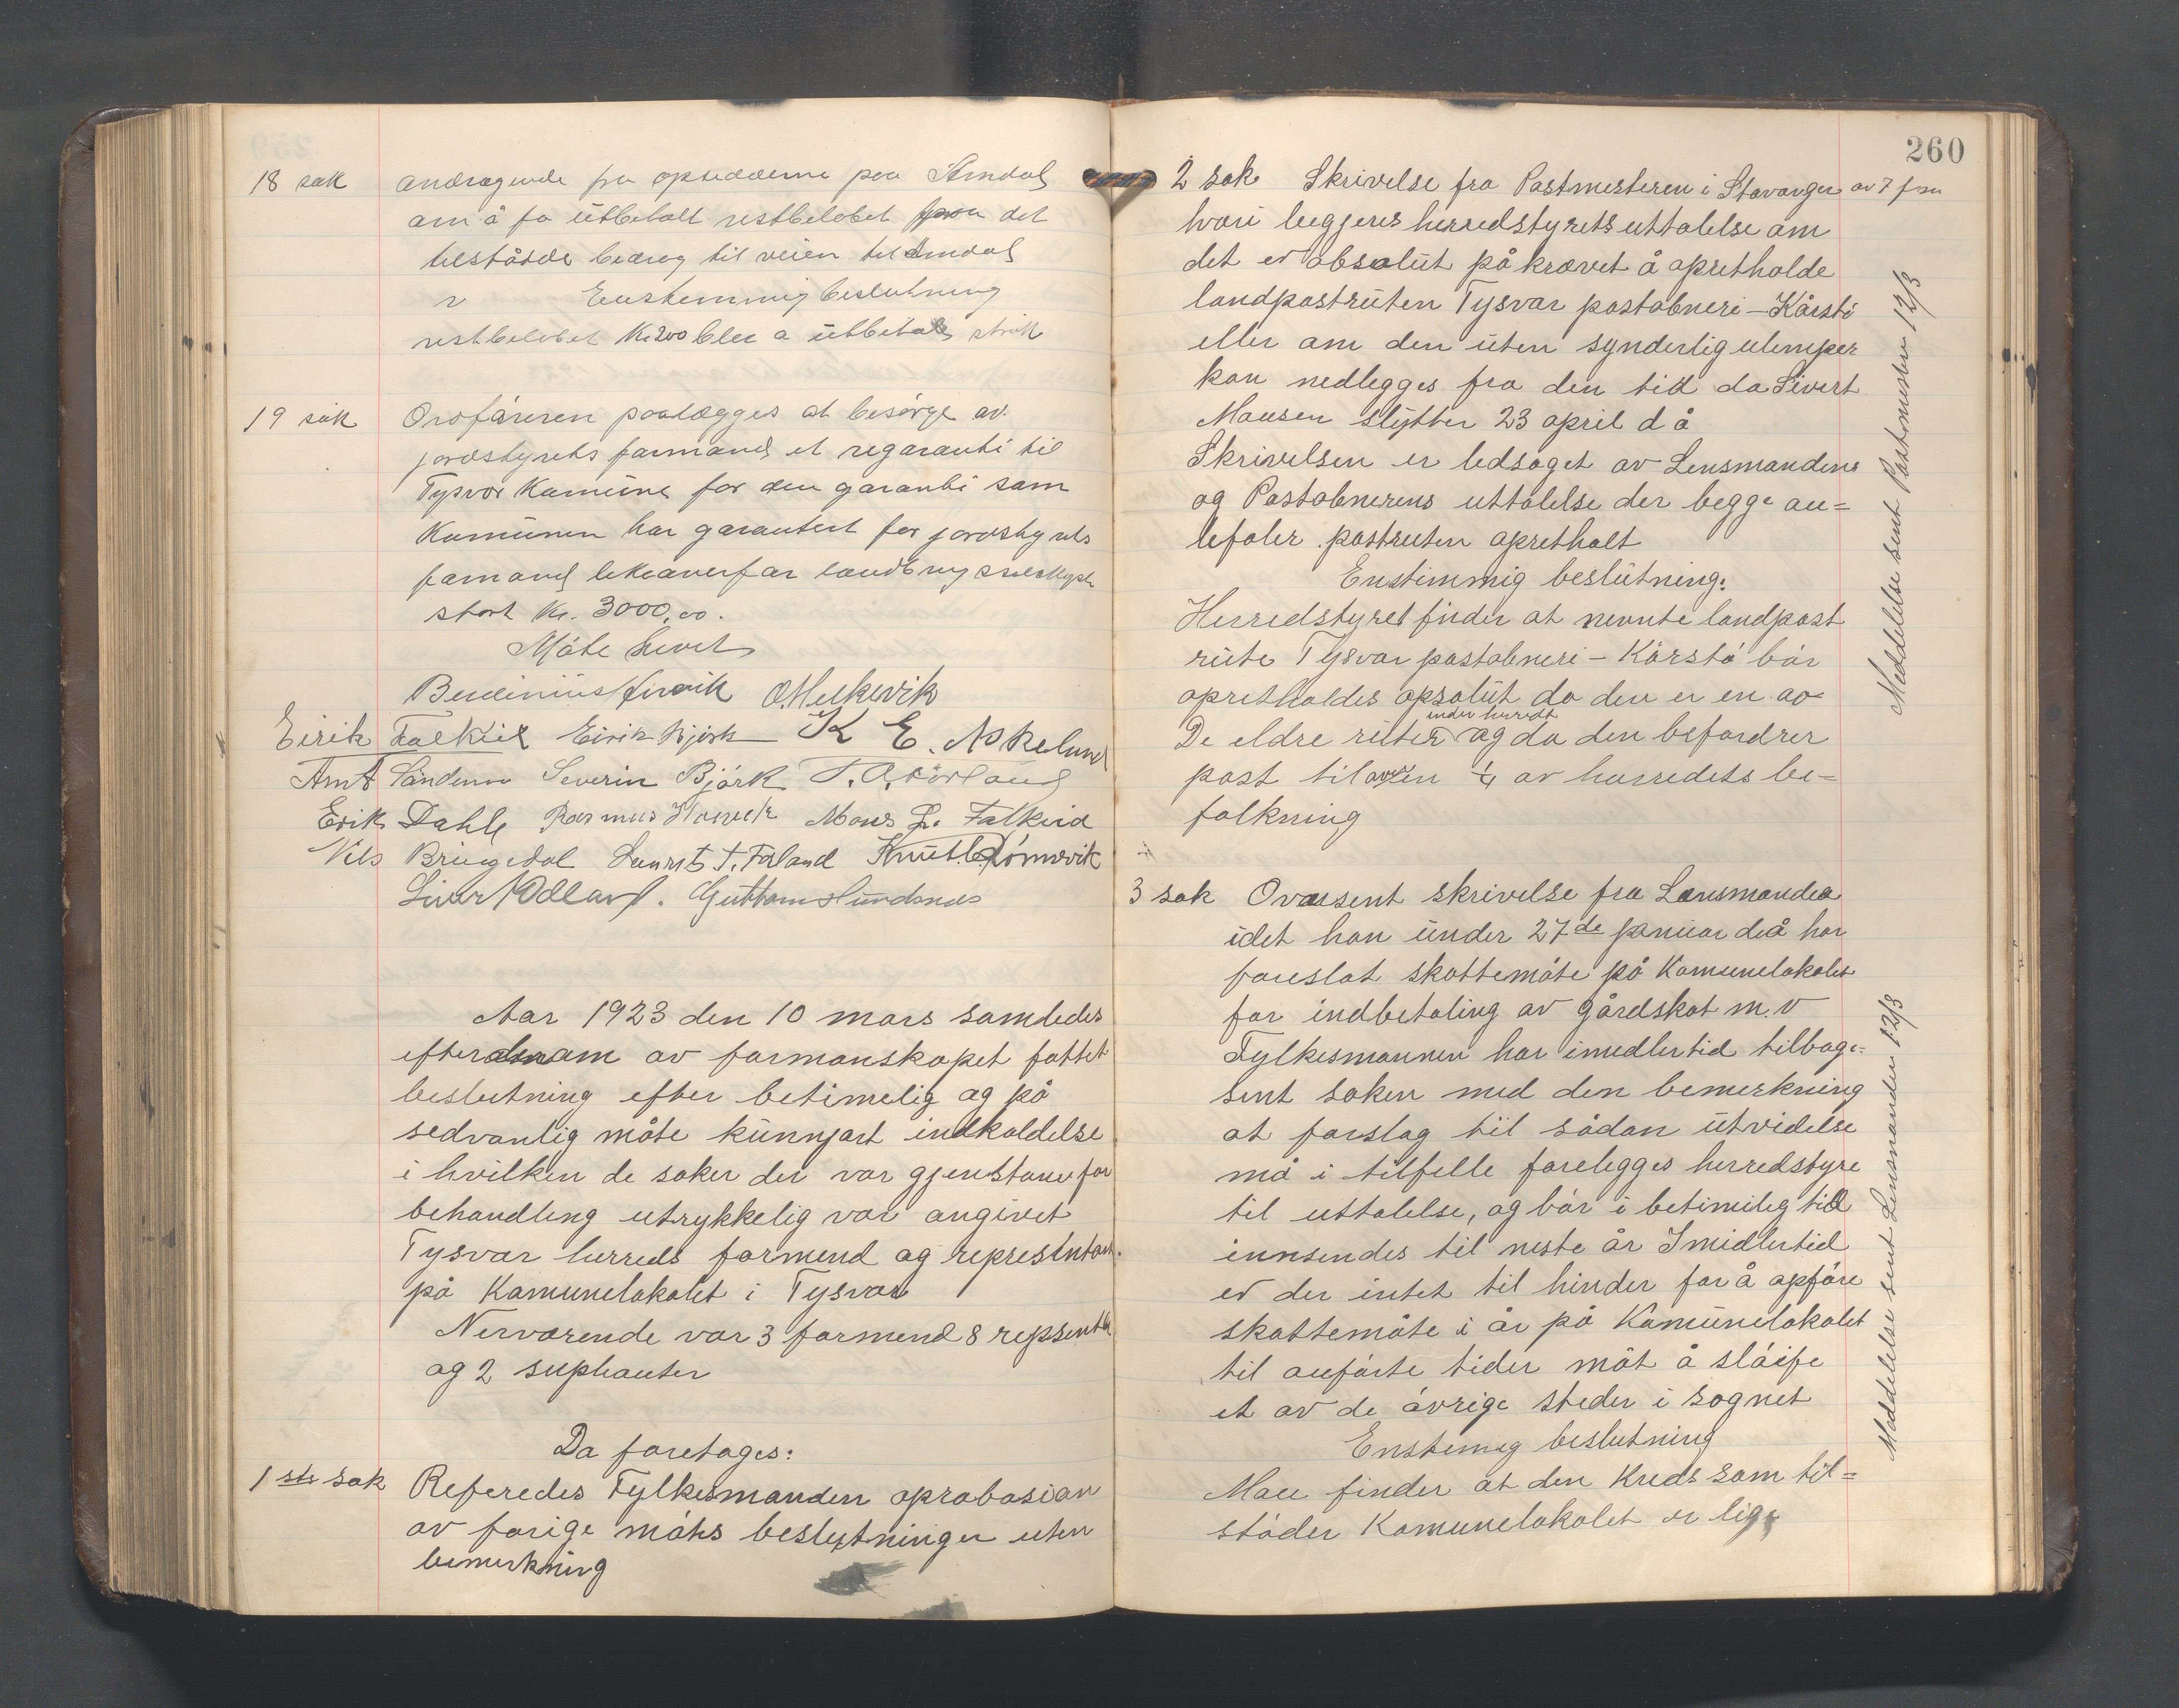 18 sak andragende fra opsidderne paa Amdal
om å fa ütbetalt restbeløbet paa det
tilståede bedrag til veien til Amdal
Enstemmig beslutning
restbelobet Kr 200 blir a ütbetale straks
19 sak Ordføreren paalægges at besørge av
jordstyrets formand et regaranti til
Tysvær Kamüne for den garanti sam
Kamünen har garantert for jordstyrets
formand
stort Kr. 3000,00.
Møte hevet
O. Meckevik
Eirik Falkeid Eirik Bjørk K E. Askelund
Arnt Sandene Severin Björk T. A. Førland
Erik Dahle Rasmus Hervik Mons L. Falkeid
Nils Bringedal Laurits T. Førland Knut
Sivert Odland. Guttorm Sundsnes
Aar 1923 den 10 mars samledes
efter am av formanskapet fattet
beslutning efter betimelig og på
sedvanlig måte künnjort indkaldelse
i hvilken de saker der var gjenstane for
behandling utrykkelig var angivet
Tysvar herreds formend og representant.
på Kamunelokalet i Tysvar
Nerværende var 3 formend 8 repsentter
og 2 suplianter
Da foretages:
1 ste sak Referedes Fylkesmanden aprobasion
av forige møtes beslutninger uten
bemerkning
260
2 sak Skrivelse fra Postmesteren i Stavanger av 7 f m
hvori begjeres herredstyrets uttalelse om
det er absolut på krævet å opretholde
landpostrüten Tysvar postabneri – Kårstø
eller om den üten synderlig ulemper
kan nedlegges fra den tid da Sivert
Mansen slütter 23 april d å
Skrivelsen er ledsaget av Lensmandens
og Postabnerens uttalelse der begge an=
befaler postruten oprethalt
Enstimmig beslütning:
Herredstyret finder at nevnte landpost
rüte Tysvar postabneri – Kårstø bør
opretholdes opsolüt da den er en av
De eldre rüter inden herredt og da den befordrer
post til over en ¼ av herredets be=
falkning
3 sak Oversent skrivelse fra Lensmanden
idet han ünder 27de januar d å har
foreslat skattemøte på Kamunelokalet
for indbetaling av gårdskat m.v
Fylkesmannen har imedlertid tilbage=
sent saken med den bemerkning
at forslag til sådan ütvidelse
må i tilfelle forelegges herredstyre
til uttalelse, og bør i betimelig tid
innsendes til neste år Imidlertid
er der intet til hinder for å opføre
skattemøte i år på Kamünelokalet
til anførte tider möt å sløife
et av de øvrige steder i sognet
Enstemig beslutning
Man finder at den Kreds som til=
støder Kamunelokalet er lige
Meddelelse sent Postmesteren 12/3
Meddelelse sent Lensmanden 12/3